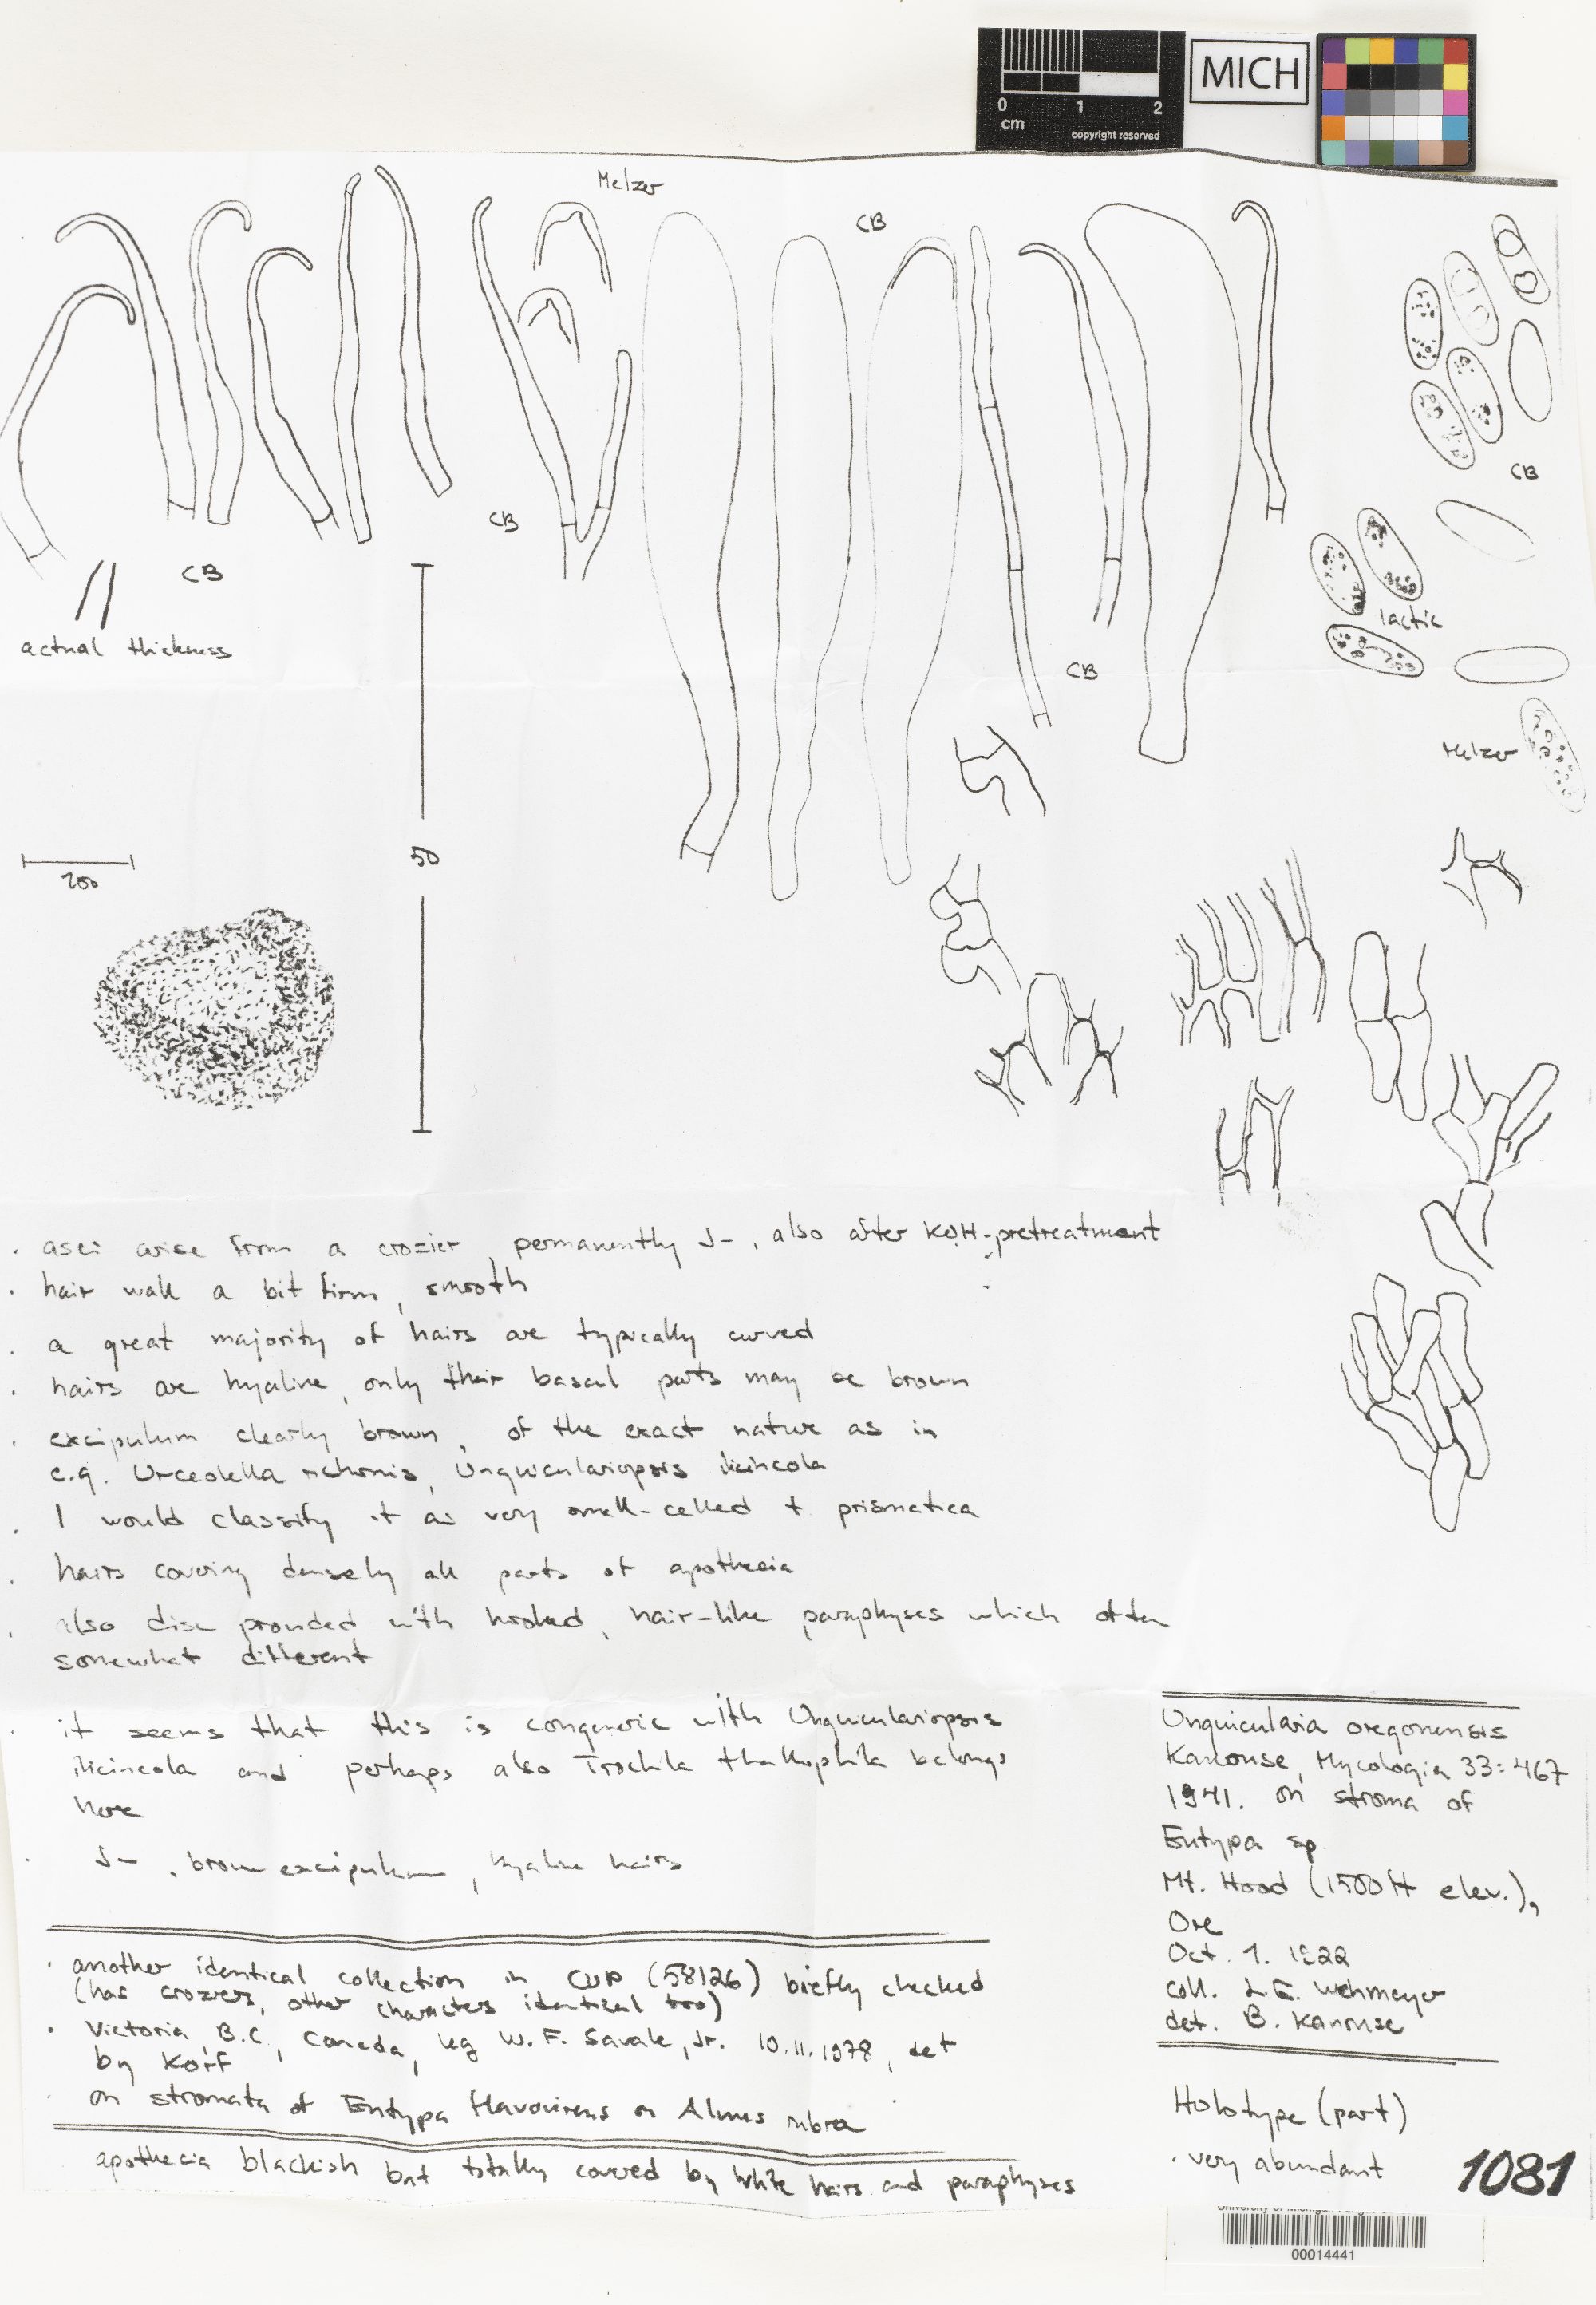 0 1 2
cm
copyright reserved
MICH
Melzer
CB
CB
CB
CB
CB
actual thickness
lactic
Melzer
50
200
· asci arise from a crozier, permanently J-, also after KOH-pretreatment
· hair wall a bit firm, smooth
· a great majority of hairs are typically curved
· hairs are hyaline, only their basal parts may be brown
· excipulum clearly brown, of the exact nature as in
e.g. Urceolella richonis, Unguiculariopsis ilicincola
· I would classify it as very small-celled t. prismatica
· hairs covering densely all parts of apothecia
· also disc provided with hooked, hair-like paraphyses which often
somewhat different
· it seems that this is congeneric with Unguiculariopsis
ilicincola and perhaps also Trochila thallophila belongs
here
· J-, brown excipulum, hyaline hairs
· another identical collection in CUP (58126) briefly checked
(has croziers, other characters identical too)
· Victoria, B.C., Canada, leg W. F. Savale, Jr. 10.11.1978, det
by Korf
· on stromata of Eutypa flavovirens on Alnus rubra
apothecia blackish but totally covered by white hairs and paraphyses
Unguicularia oregonensis
Kanouse, Mycologia 33:467
1941. on stroma of
Eutypa sp.
Mt. Hood (1500 ft elev.),
Ore
Oct. 1. 1922
coll. L.E. Wehmeyer
det. B. Kanouse
Holotype (part)
· very abundant
1081
00014441